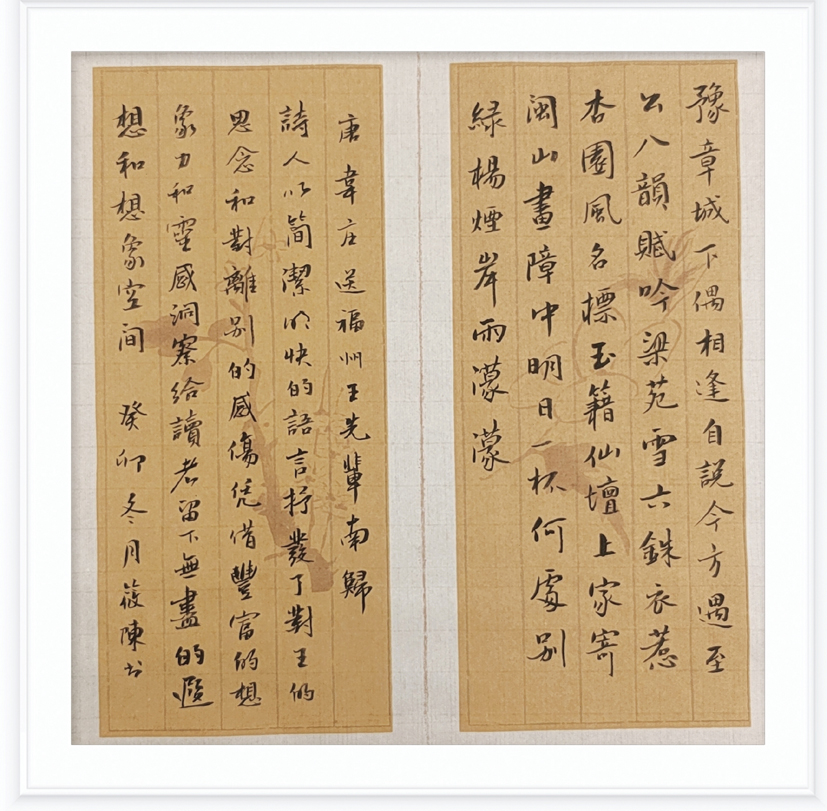 豫章城下偶相逢自説今方遇至
公八韻賦吟梁苑雪六銖衣惹
杏園風名標玉籍仙壇上家寄
閩山畫障中明日一杯何處别
緑楊煙岸雨濛濛
唐韋庄送福州王先輩南歸
詩人以簡潔明快的語言抒發了對王的
思念和對離别的感傷凭借豐富的想
象力和靈感洞察給讀者留下無盡的遐
想和想象空间 癸卯冬月筱陳书